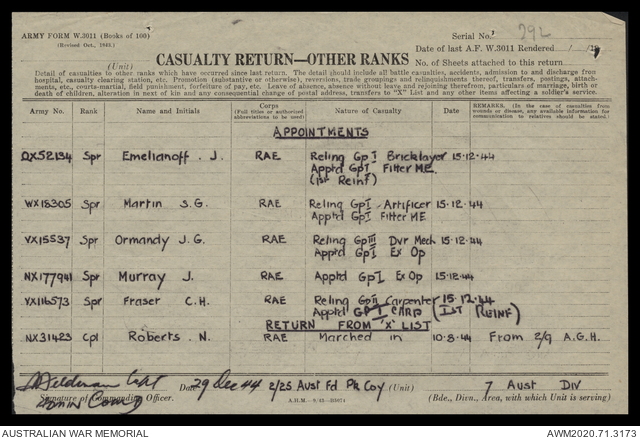 ARMY FORM W.3011 (Books of 100)
(Revised Oct., 1943.)
Serial No. 292
Date of last A.F. W.3011 Rendered / /19
(Unit)
CASUALTY RETURN—OTHER RANKS
No. of Sheets attached to this return
Detail of casualties to other ranks which have occurred since last return. The detail should include all battle casualties, accidents, admission to and discharge from
hospital, casualty clearing station, etc. Promotion (substantive or otherwise), reversions, trade groupings and relinquishments thereof, transfers, postings, attach-
ments, etc., courts-martial, field punishment, forfeiture of pay, etc. Leave of absence, absence without leave and rejoining therefrom, particulars of marriage, birth or
death of children, alteration in next of kin and any consequential change of postal address, transfers to "X" List and any other items affecting a soldier's service.
Army No. Rank Name and Initials Corps (Full title or authorized abbreviations to be used) Nature of Casualty Date REMARKS. (In the case of casualties from wounds or disease, any available information for communication to relatives should be stated)
APPOINTMENTS
QX52134 Spr Emelianoff . J. RAE Relinq Gp I Bricklayer 15.12.44
Apptd Gp I Fitter ME.
(1st Reinf)
WX18305 Spr Martin S.G. RAE Relinq Gp I Artificer 15.12.44
Apptd Gp I Fitter ME
VX15537 Spr Ormandy J.G. RAE Relinq Gp III Dvr Mech 15.12.44
Apptd Gp I Ex Op
NX177941 Spr Murray J. RAE Apptd Gp I Ex Op 15.12.44
VX116573 Spr Fraser C.H. RAE Relinq Gp II Carpenter 15.12.44
Apptd GP I CARP (1ST REINF)
RETURN FROM 'X' LIST
NX31423 Cpl Roberts . N. RAE Marched in 10.8.44 From 2/9 A.G.H.
Capt
Signature of Commanding Officer.
Date 29 Dec 44 2/25 Aust Fd Pk Coy (Unit) 7 Aust Div
(Bde., Divn., Area, with which Unit is serving)
AUSTRALIAN WAR MEMORIAL
AWM2020.71.3173